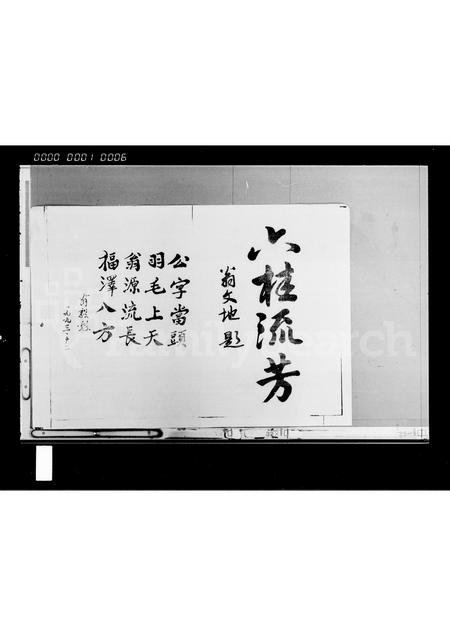 0000 0001 0006
六桂流芳
翁文地題
公字當頭
羽毛上天
翁源流長
福澤八方
一九九三·十二
FamilySearch